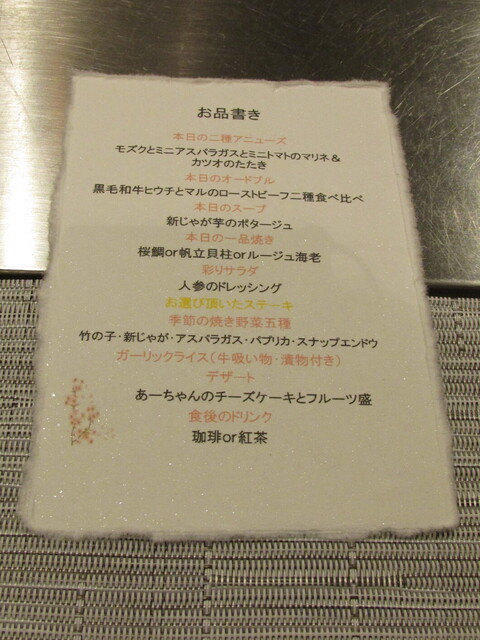 お品書き
本日の二種アニューズ
モズクとミニアスパラガスとミニトマトのマリネ＆
カツオのたたき
本日のオードブル
黒毛和牛ヒウチとマルのローストビーフ二種食べ比べ
本日のスープ
新じゃが芋のポタージュ
本日の一品焼き
桜鯛or帆立貝柱orルージュ海老
彩りサラダ
人参のドレッシング
お選び頂いたステーキ
季節の焼き野菜五種
竹の子・新じゃが・アスパラガス・パプリカ・スナップエンドウ
ガーリックライス（牛吸い物・漬物付き）
デザート
あーちゃんのチーズケーキとフルーツ盛
食後のドリンク
珈琲or紅茶